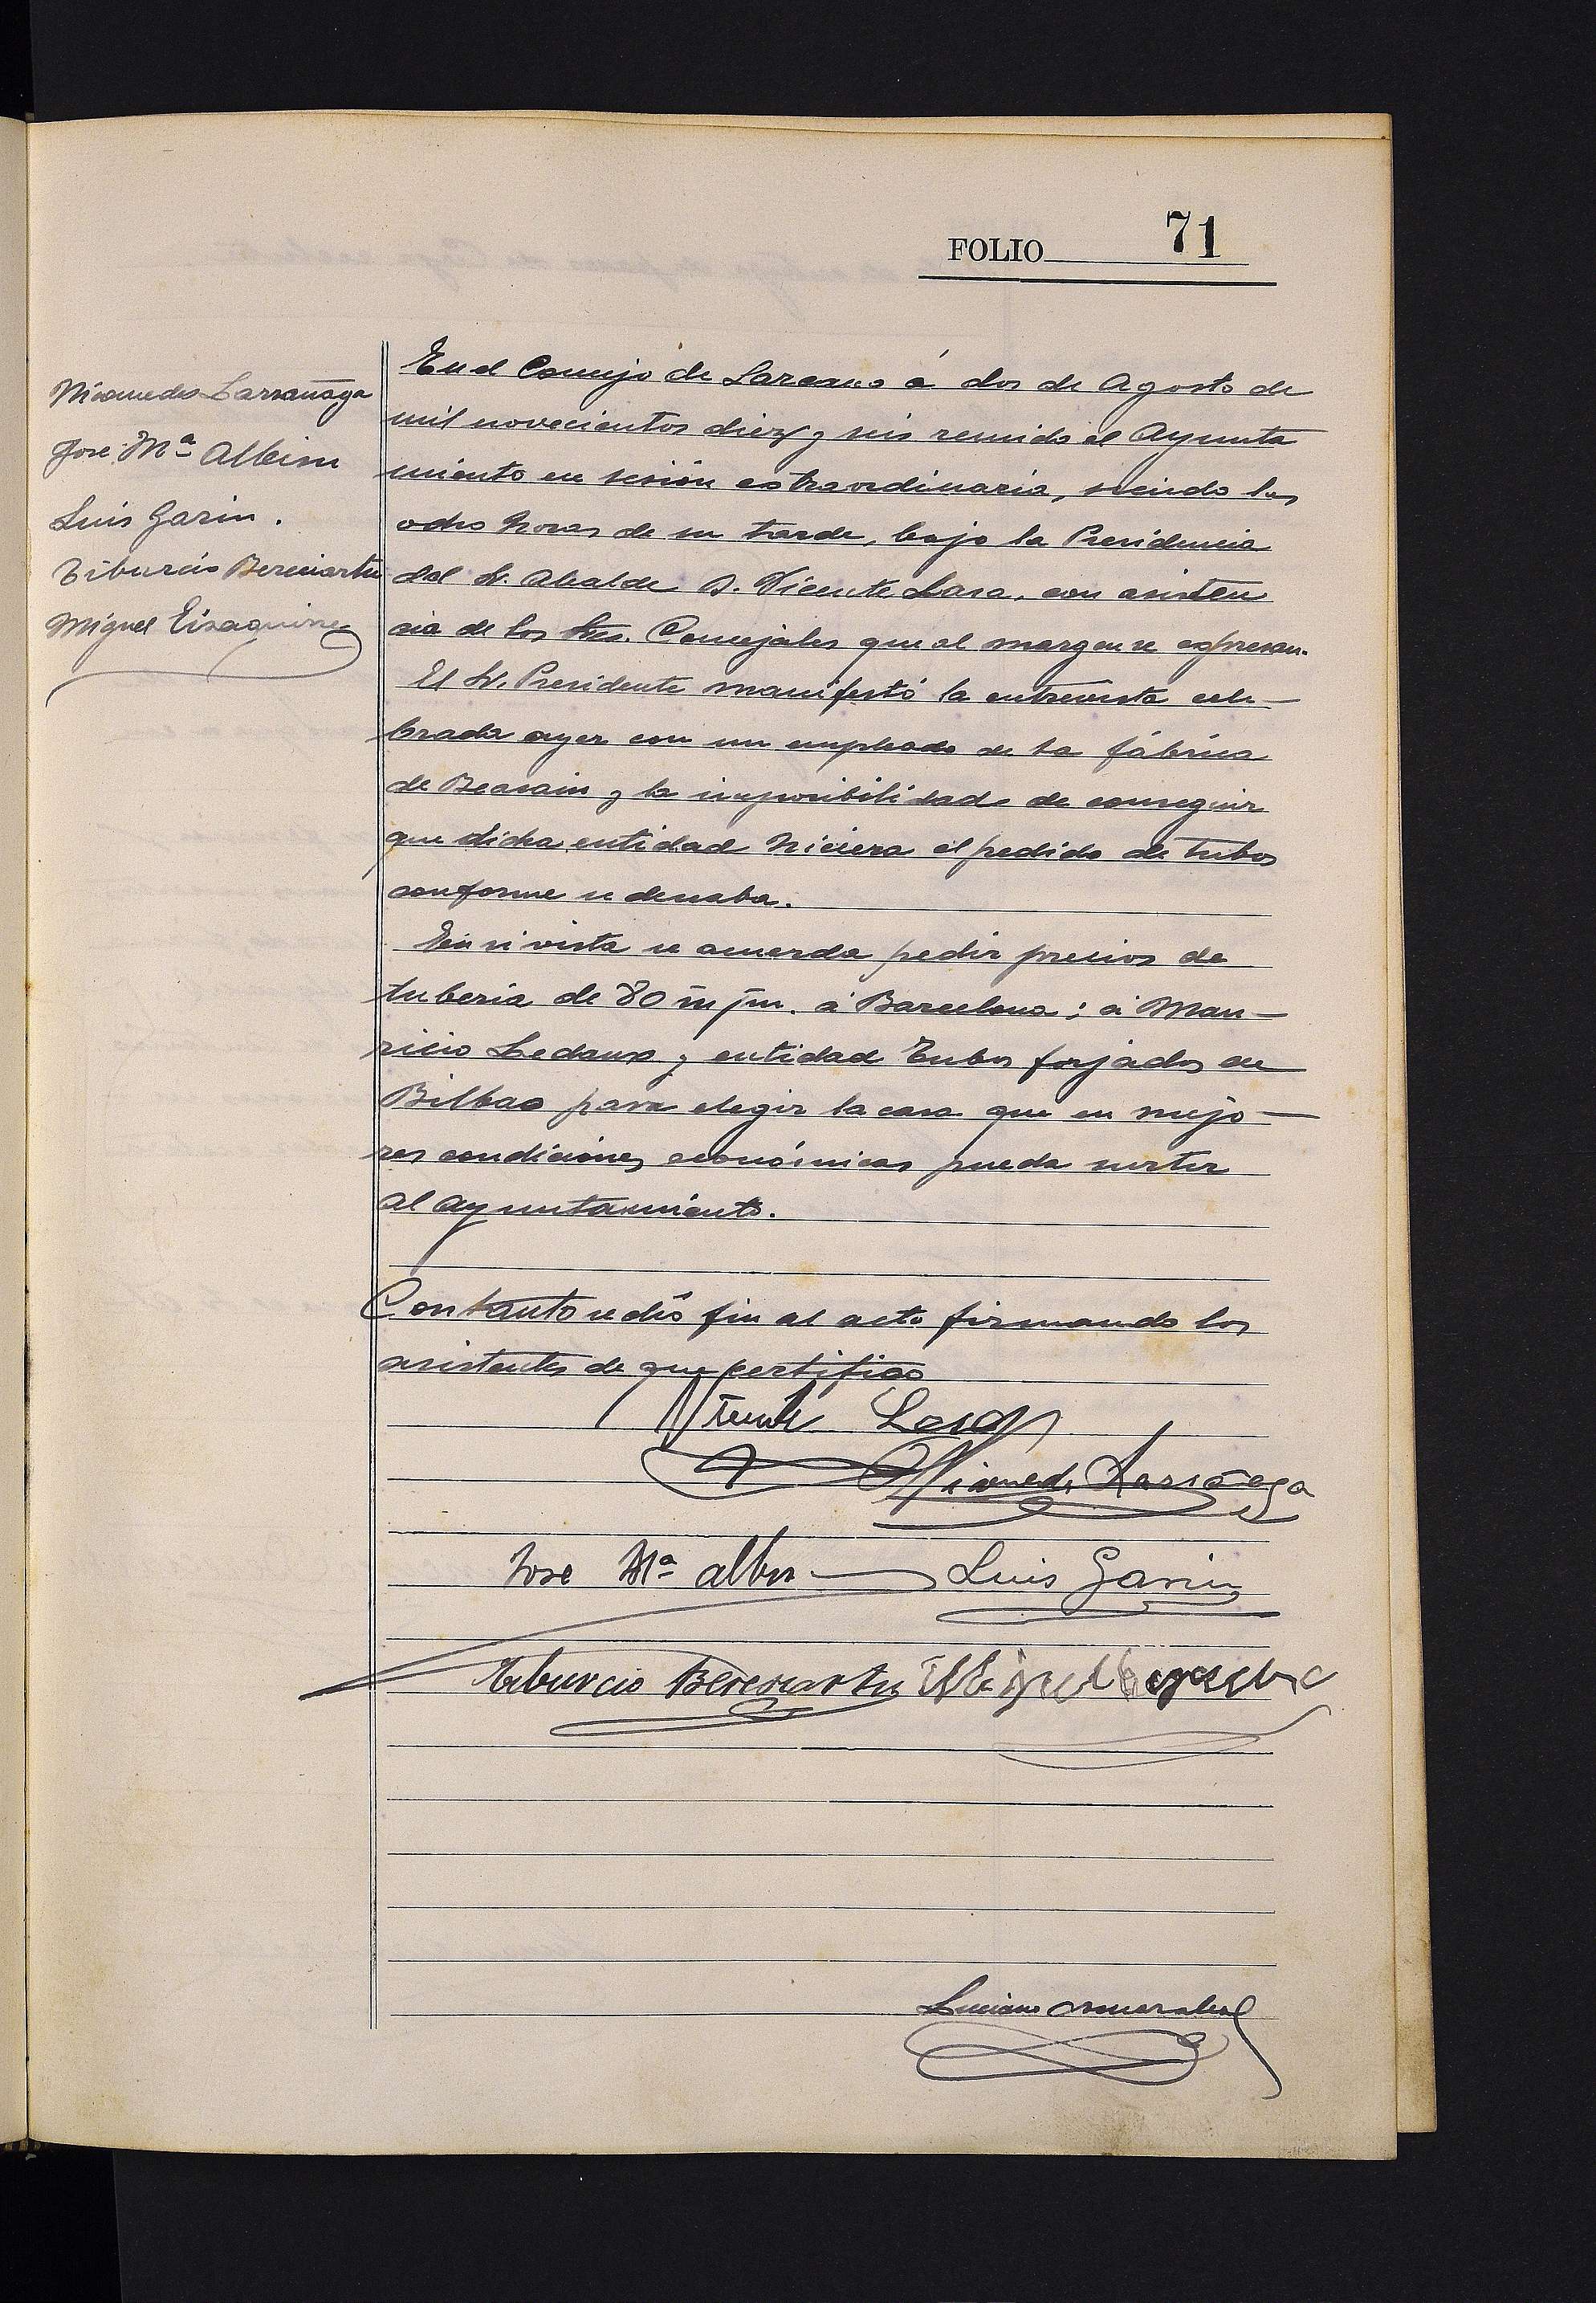 FOLIO 71
Nicomedes Larrañaga
José Mª Albisu
Luis Garin.
Tiburcio Bereciartu
Miguel Eizaguirre
En el Concejo de Lazcano á dos de Agosto de
mil novecientos diez y seis reunido el Ayunta
miento en sesión extraordinaria, siendo las
ocho horas de su tarde, bajo la Presidencia
del Sr. Alcalde D. Vicente Lasa, con asisten
cia de los Sres. Concejales que al margen se expresan.
El Sr. Presidente manifestó la entrevista cele—
brada ayer con un empleado de la fábrica
de Beasain y la imposibilidad de conseguir
que dicha entidad hiciera el pedido de tubos
conforme se deseaba.
En su vista se acuerda pedir precios de
tubería de 80 m/m. á Barcelona; á Mau—
ricio Ledoux y entidad Tubos forjados de
Bilbao para elegir la casa que en mejo—
res condiciones económicas pueda surtir
al Ayuntamiento.
Con tanto se dió fin al acto firmando los
asistentes de que certifico
Vicente Lasa
Nicomedes Larrañaga
Jose Mª albisu Luis Garin
Tiburcio Bereciartu Miguel
Luciano